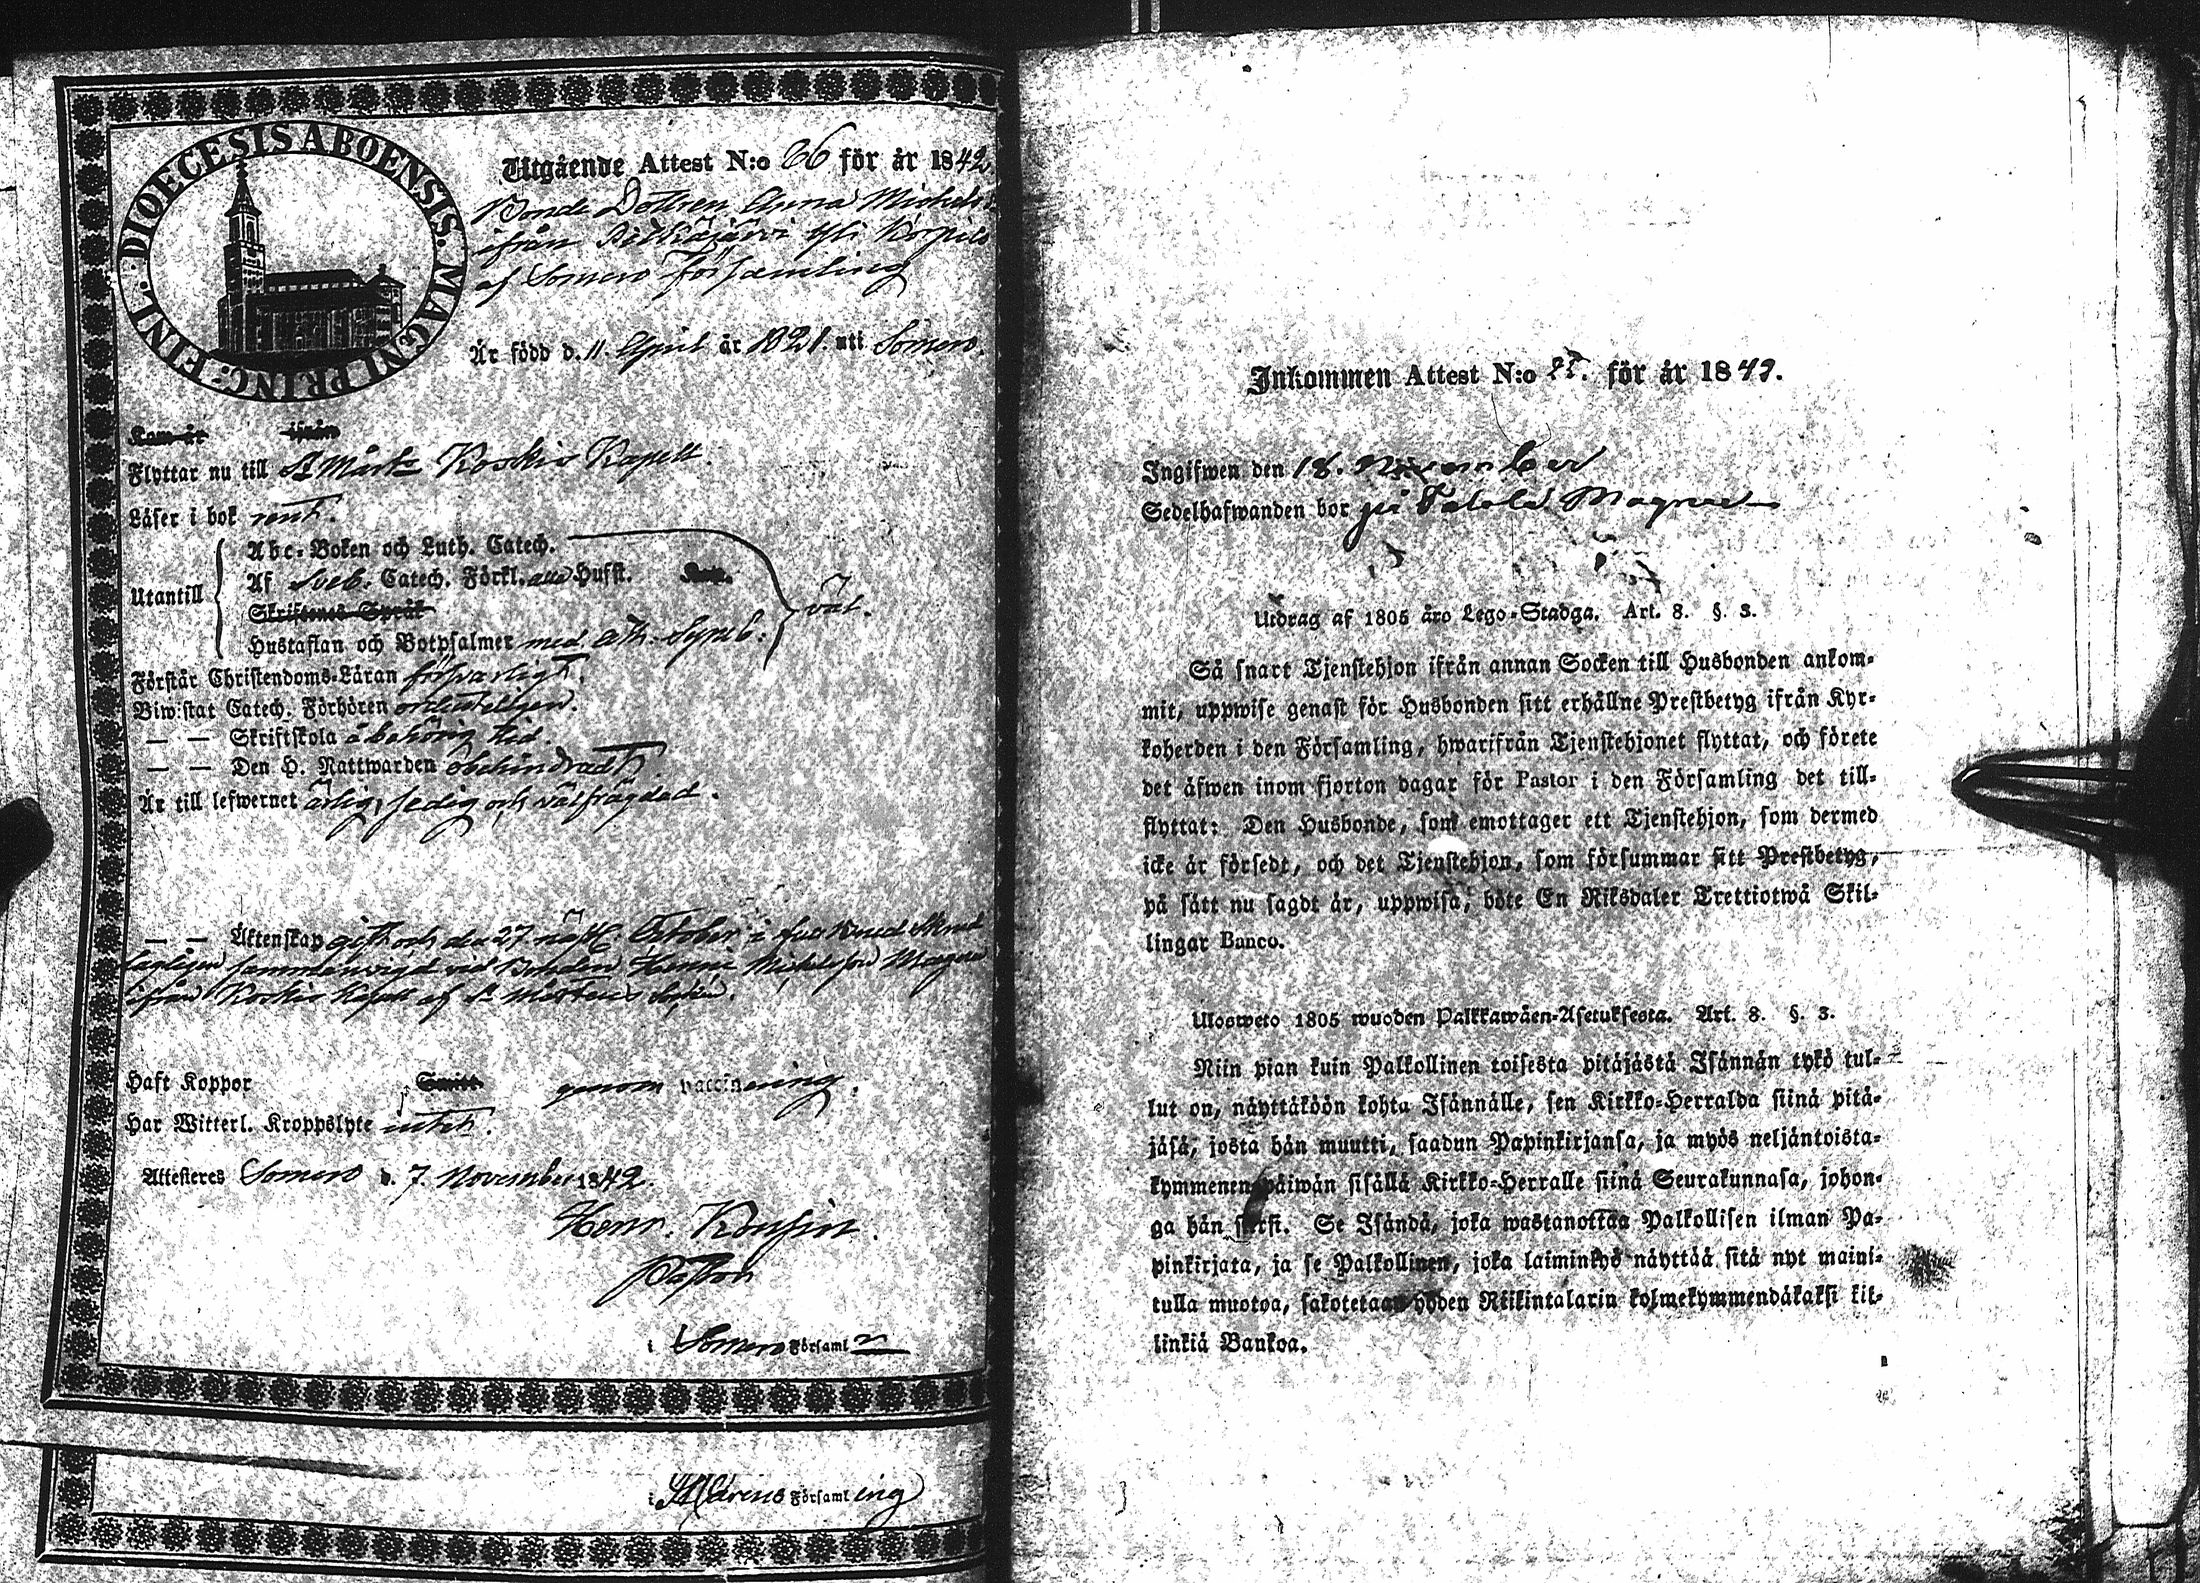 DIOECESIS ABOENSIS. MAGNI PRINC: FINL.
Utgående Attest N:o 66 för år 1842
Bonde Dottren Anna Michels
ifrån yli
af Somero Församling
Är född d. 11. April år 1821. uti Somero.
Kom år ifrån
Flyttar nu till St Mårt: Koskis Kapell.
Läser i bok rent.
Utantill
Abc-Boken och Luth. Catech.
Af Sveb. Catech. Förkl. alla Hufst.
Skriftenes Språk
Hustaflan och Botpsalmer med Ath. Symb. väl.
Förstår Christendoms-Läran försvarligt.
Biw:stat Catech. Förhören ordenteligen.
— — Skriftskola å behörig tid.
— — Den H. Nattwarden obehindradt
Är till lefwernet ärlig, sedig och välfrägdad.
— — Äktenskap gift och den 27 näst October i
sammanvigd vid Bonden Henric Michelsson
ifrån Koskis Kapell af St Mårtens Socken.
Haft Koppor Smitt. genom vaccinering.
Har Witterl. Kroppslyte intet.
Attesteres Somero d. 7. November 1842.
Henr.
Pastor
i Somero Församl
i St Mårtens Församling
Inkommen Attest N:o för år 1842.
Ingifwen den 18. November
Sedelhafwanden bor på Talola
Utdrag af 1805 åro Lego-Stadga. Art. 8. §. 3.
Så snart Tjenstehjon ifrån annan Socken till Husbonden ankom-
mit, uppwise genast för Husbonden sitt erhållne Prestbetyg ifrån Kyr-
koherden i den Församling, hwarifrån Tjenstehjonet flyttat, och förete
det äfwen inom fjorton dagar för Pastor i den Församling det till-
flyttat: Den Husbonde, som emottager ett Tjenstehjon, som dermed
icke är försedt, och det Tjenstehjon, som försummar sitt Prestbetyg,
på sätt nu sagdt är, uppwisa, böte En Riksdaler Trettiotwå Skil-
lingar Banco.
Ulosweto 1805 wuoden Palkkawäen-Asetuksesta. Art. 8. §. 3.
Niin pian kuin Palkollinen toisesta pitäjästä Isännän tykö tul-
lut on, näyttäköön kohta Isännälle, sen Kirkko-Herralda siinä pitä-
jäsä, josta hän muutti, saadun Papinkirjansa, ja myös neljäntoista-
kymmenen päiwän sisällä Kirkko-Herralle siinä Seurakunnasa, johon-
ga hän siirsi. Se Isändä, joka wastanottaa Palkollisen ilman Pa-
pinkirjata, ja se Palkollinen, joka laiminlyö näyttää sitä nyt maini-
tulla muotoa, sakotetaan yhden Riikintalarin kolmekymmendäkaksi kil-
linkiä Bankoa.